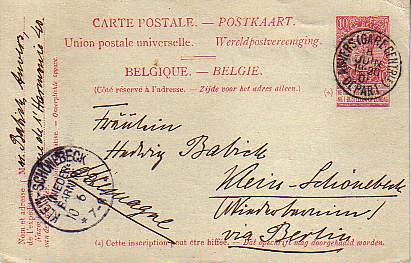 CARTE POSTALE. — POSTKAART.
Union postale universelle. Wereldpostvereeniging.
BELGIQUE. — BELGIE.
(Côté réservé à l'adresse. - Zijde voor het adres alleen.)
10
ANVERS (GARE CENTR)
DÉPART
Fräulein
Hedwig Babick
Klein-Schönebeck
(Niederbarnim)
via Berlin
Allemagne
KLEIN-SCHÖNEBECK
(*) Cette inscription peut être biffée. - Dat opschrift mag doorgehaald worden.
Nom et adresse
de l'expéditeur
Babick Anvers
rue de l'Harmonie 40.